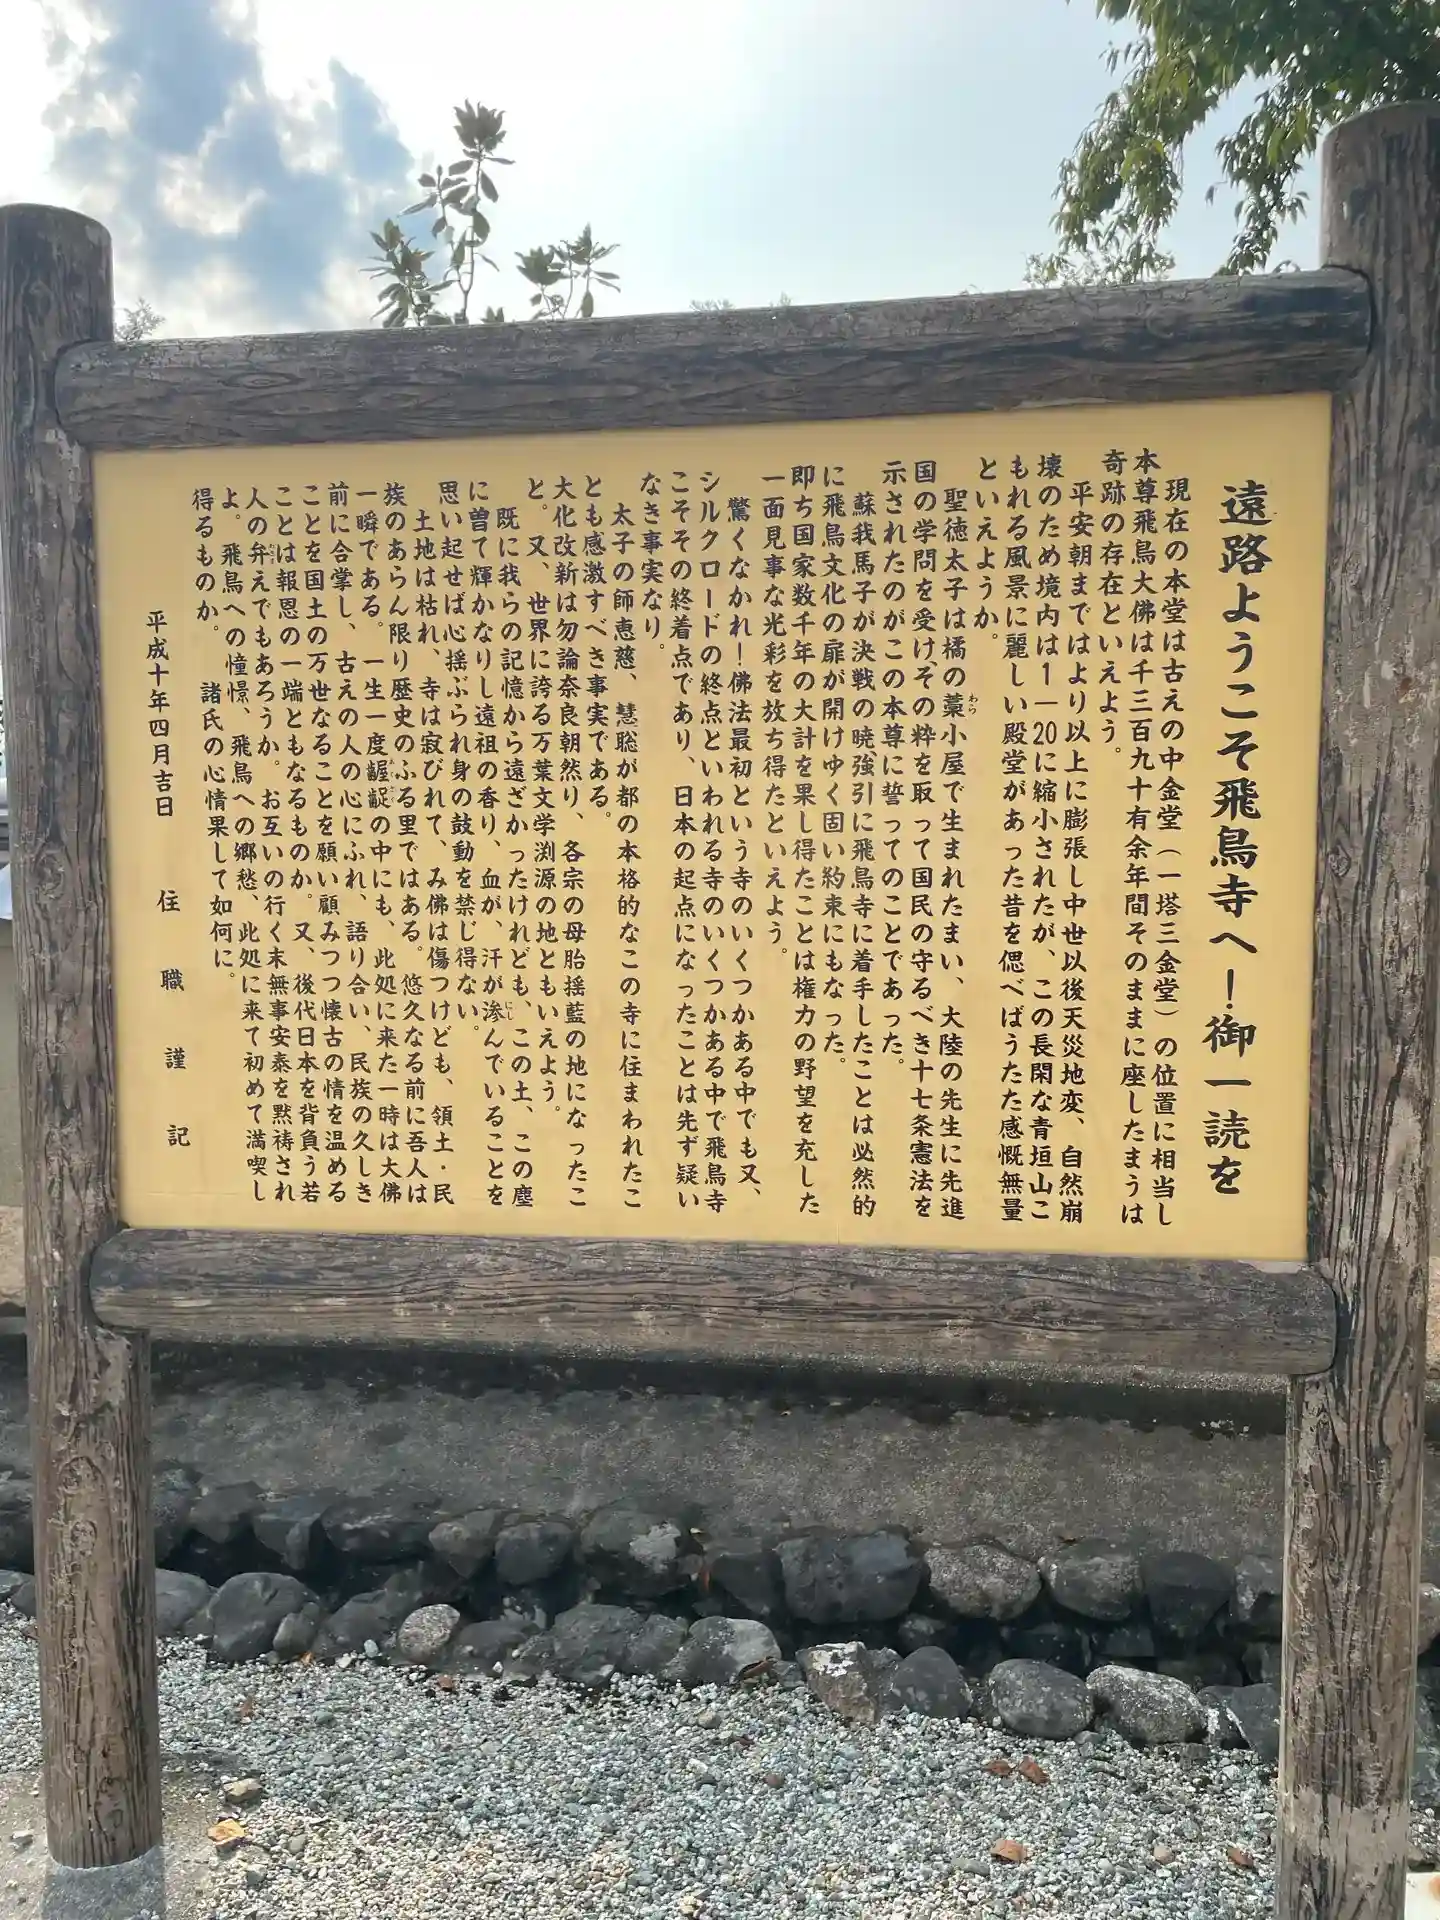 遠路ようこそ飛鳥寺へ！御一読を
現在の本堂は古えの中金堂（一塔三金堂）の位置に相当し
本尊飛鳥大佛は千三百九十有余年間そのままに座したまうは
奇跡の存在といえよう。
平安朝まではより以上に膨張し中世以後天災地変、自然崩
壊のため境内は1―20に縮小されたが、この長閑な青垣山こ
もれる風景に麗しい殿堂があった昔を偲べばうたた感慨無量
といえようか。
聖徳太子は橘の藁小屋で生まれたまい、大陸の先生に先進
国の学問を受け、その粋を取って国民の守るべき十七条憲法を
示されたのがこの本尊に誓ってのことであった。
蘇我馬子が決戦の暁、強引に飛鳥寺に着手したことは必然的
に飛鳥文化の扉が開けゆく固い約束にもなった。
即ち国家数千年の大計を果し得たことは権力の野望を充した
一面見事な光彩を放ち得たといえよう。
驚くなかれ！佛法最初という寺のいくつかある中でも又、
シルクロードの終点といわれる寺のいくつかある中で飛鳥寺
こそその終着点であり、日本の起点になったことは先ず疑い
なき事実なり。
太子の師恵慈、慧聡が都の本格的なこの寺に住まわれたこ
とも感激すべき事実である。
大化改新は勿論奈良朝然り、各宗の母胎揺藍の地になったこ
と。又、世界に誇る万葉文学渕源の地ともいえよう。
既に我らの記憶から遠ざかったけれども、この土、この塵
に曽て輝かなりし遠祖の香り、血が、汗が滲んでいることを
思い起せば心揺ぶられ身の鼓動を禁じ得ない。
土地は枯れ、寺は寂びれて、み佛は傷つけども、領土・民
族のあらん限り歴史のふる里ではある。悠久なる前に吾人は
一瞬である。一生一度齷齪の中にも、此処に来た一時は大佛
前に合掌し、古えの人の心にふれ、語り合い、民族の久しき
ことを国土の万世なることを願い顧みつつ懐古の情を温める
ことは報恩の一端ともなるものか。又、後代日本を背負う若
人の弁えでもあろうか。お互いの行く末無事安泰を黙祷され
よ。飛鳥への憧憬、飛鳥への郷愁、此処に来て初めて満喫し
得るものか。諸氏の心情果して如何に。
平成十年四月吉日　住職謹記